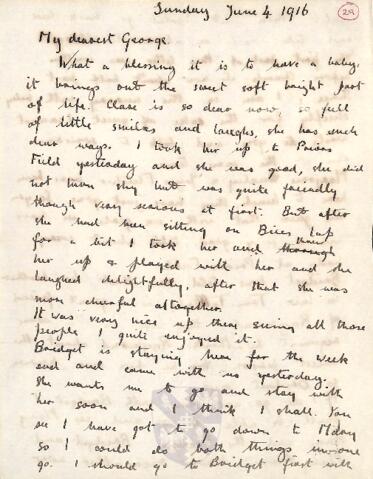 Sunday June 4 1916
29
My dearest George.
What a blessing it is to have a baby.
it brings out the sweet soft bright part
of life. Clare is so dear now, so full
of little smiles and laughs, she has such
dear ways. I took her up to Priors
Field yesterday and she was good, she did
not turn shy but was quite friendly
though very serious at first. But after
she had been sitting on lap
for a bit I took her and through then
her up & played with her and she
laughed delightfully, after that she was
more cheerful altogether.
It was very nice up there seeing all those
people I quite enjoyed it.
Bridget is staying here for the week
end and came with us yesterday.
She wants me to go and stay with
her soon and I think I shall. You
see I have got to go down to
so I could do both things in one
go. I should go to Bridget first with